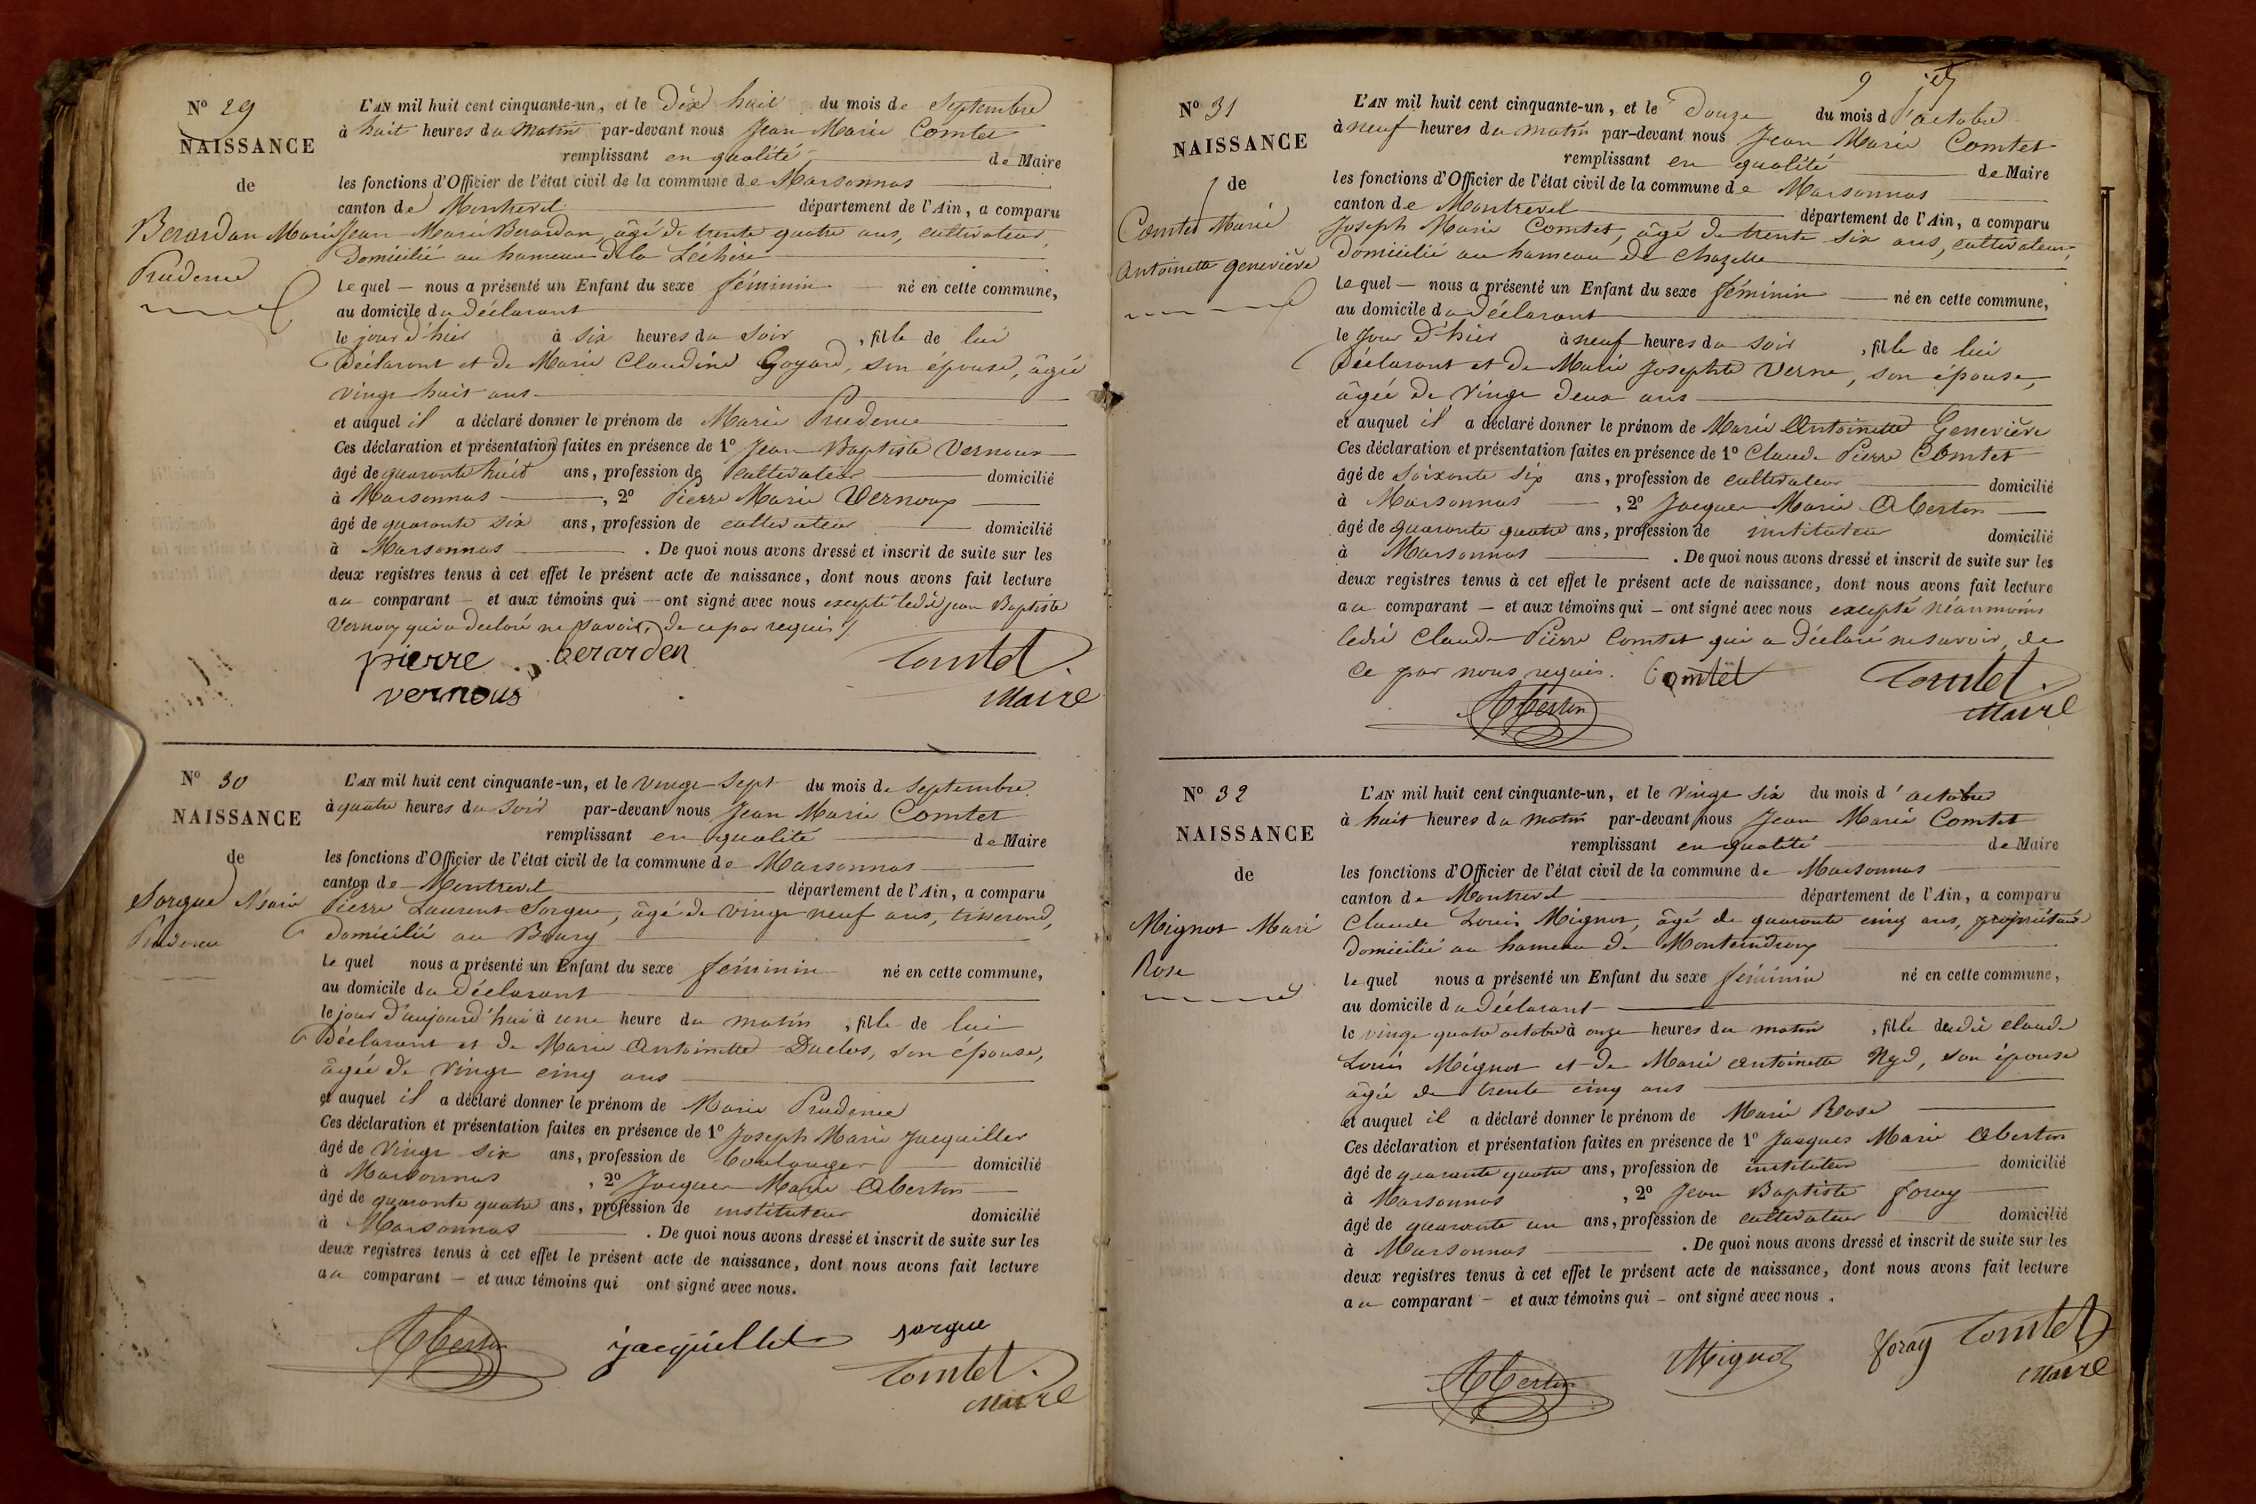 N° 29
NAISSANCE
de
Berardan Marie
Prudence
L'AN mil huit cent cinquante-un, et le dix huit du mois de Septembre
à huit heures du matin par-devant nous Jean Marie Comtet
remplissant en qualité de Maire
les fonctions d'Officier de l'état civil de la commune de Marsonnas
canton de Montrevel département de l'Ain, a comparu
Jean Marie Berardan, âgé de trente quatre ans, cultivateur,
domicilié au hameau de la Léchère
lequel nous a présenté un Enfant du sexe féminin né en cette commune,
au domicile du déclarant
le jour d'hier à six heures du soir, fille de lui
déclarant et de Marie Claudine Goyard, son épouse, âgée
vingt huit ans
et auquel il a déclaré donner le prénom de Marie Prudence
Ces déclaration et présentation faites en présence de 1° Jean Baptiste Vernoux
âgé de quarante huit ans, profession de cultivateur domicilié
à Marsonnas, 2° Pierre Marie Vernoux
âgé de quarante six ans, profession de cultivateur domicilié
à Marsonnas. De quoi nous avons dressé et inscrit de suite sur les
deux registres tenus à cet effet le présent acte de naissance, dont nous avons fait lecture
au comparant et aux témoins qui ont signé avec nous excepté ledit jean Baptiste
Vernoux qui a déclaré ne savoir, de ce par requis
pierre berarden Comtet
vernous Maire
N° 30
NAISSANCE
de
Sorgue Marie
Prudence
L'AN mil huit cent cinquante-un, et le vingt sept du mois de Septembre
à quatre heures du soir par-devant nous Jean Marie Comtet
remplissant en qualité de Maire
les fonctions d'Officier de l'état civil de la commune de Marsonnas
canton de Montrevel département de l'Ain, a comparu
Pierre Laurent Sorgue, âgé de vingt neuf ans, tisserand,
domicilié au Bourg
lequel nous a présenté un Enfant du sexe féminin né en cette commune,
au domicile du déclarant
le jour d'aujourd'hui à une heure du matin, fille de lui
déclarant et de Marie Antoinette Duclos, son épouse,
âgée de vingt cinq ans
et auquel il a déclaré donner le prénom de Marie Prudence
Ces déclaration et présentation faites en présence de 1° Joseph Marie Jacquiller
âgé de vingt six ans, profession de boulanger domicilié
à Marsonnas, 2° Jacques Marie Oberton
âgé de quarante quatre ans, profession de instituteur domicilié
à Marsonnas. De quoi nous avons dressé et inscrit de suite sur les
deux registres tenus à cet effet le présent acte de naissance, dont nous avons fait lecture
au comparant et aux témoins qui ont signé avec nous.
jacquillet sorgue
Comtet
Maire
9
N° 31
NAISSANCE
de
Comtet Marie
Antoinette geneviève
L'AN mil huit cent cinquante-un, et le Douze du mois d'octobre
à neuf heures du matin par-devant nous Jean Marie Comtet
remplissant en qualité de Maire
les fonctions d'Officier de l'état civil de la commune de Marsonnas
canton de Montrevel département de l'Ain, a comparu
Joseph Marie Comtet, âgé de trente six ans, cultivateur,
domicilié au hameau de Chazelle
lequel nous a présenté un Enfant du sexe féminin né en cette commune,
au domicile du déclarant
le jour d'hier à neuf heures du soir, fille de lui
déclarant et de Marie Josephte Verne, son épouse,
âgée de vingt deux ans
et auquel il a déclaré donner le prénom de Marie Antoinette Geneviève
Ces déclaration et présentation faites en présence de 1° Claude Pierre Comtet
âgé de soixante six ans, profession de cultivateur domicilié
à Marsonnas, 2° Jacques Marie Oberton
âgé de quarante quatre ans, profession de instituteur domicilié
à Marsonnas. De quoi nous avons dressé et inscrit de suite sur les
deux registres tenus à cet effet le présent acte de naissance, dont nous avons fait lecture
au comparant et aux témoins qui ont signé avec nous excepté néanmoins
ledit Claude Pierre Comtet qui a déclaré ne savoir, de
ce par nous requis. Comtet Comtet
Maire
N° 32
NAISSANCE
de
Mignot Marie
Rose
L'AN mil huit cent cinquante-un, et le vingt six du mois d'octobre
à huit heures du matin par-devant nous Jean Marie Comtet
remplissant en qualité de Maire
les fonctions d'Officier de l'état civil de la commune de Marsonnas
canton de Montrevel département de l'Ain, a comparu
Claude Louis Mignot, âgé de quarante cinq ans, propriétaire
domicilié au hameau de
lequel nous a présenté un Enfant du sexe féminin né en cette commune,
au domicile du déclarant
le vingt quatre octobre à onze heures du matin, fille dudit Claude
Louis Mignot et de Marie Antoinette Nyd, son épouse
âgée de trente cinq ans
et auquel il a déclaré donner le prénom de Marie Rose
Ces déclaration et présentation faites en présence de 1° Jacques Marie Oberton
âgé de quarante quatre ans, profession de instituteur domicilié
à Marsonnas, 2° Jean Baptiste foray
âgé de quarante un ans, profession de cultivateur domicilié
à Marsonnas. De quoi nous avons dressé et inscrit de suite sur les
deux registres tenus à cet effet le présent acte de naissance, dont nous avons fait lecture
au comparant et aux témoins qui ont signé avec nous.
Mignot foray Comtet
Maire